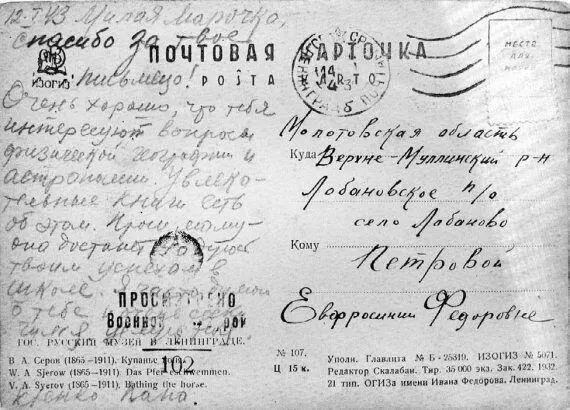 12.I.43 Милая Марочка,
спасибо за твое
письмецо!
ПОЧТОВАЯ КАРТОЧКА
POŜTA KARTO
ИЗОГИЗ
МЕСТО
ДЛЯ
МАРКИ
Очень хорошо, что тебя
интересуют вопросы
физической географии и
астрономии. Увлека-
тельные книги есть
об этом. Проси маму-
она достанет.
твоим успехам в
школе. Я часто думаю
о тебе
папа.
ПРОСМОТРЕНО
Военной Цензурой
102
Молотовская область
Куда Верхне-Муллинский р-н
Лобановское п/о
село Лобаново
Кому Петровой
Евфросинии Федоровне
ГОС. РУССКИЙ МУЗЕЙ В ЛЕНИНГРАДЕ.
В. А. Серов (1865—1911). Купанье коня.
W. A. Sjerow (1865—1911). Das Pferdeschwemmen.
V. A. Syerov (1865—1911). Bathing the horse.
№ 107.
Ц 15 к.
Уполн. Главлита № Б - 25319. ИЗОГИЗ № 5071.
Редактор Скалабан. Тир. 35 000 экз. Зак. 422. 1932.
21 тип. ОГИЗа имени Ивана Федорова, Ленинград.